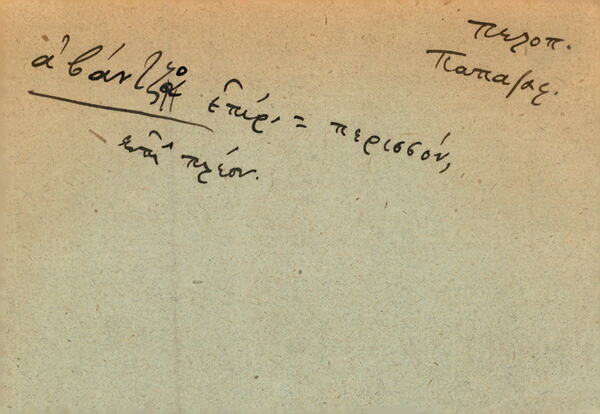 Πελοπ.
Παπαζαφ.
ἀβάντζο ἐπίρ. = περισσόν,
ἐπὶ πλέον.